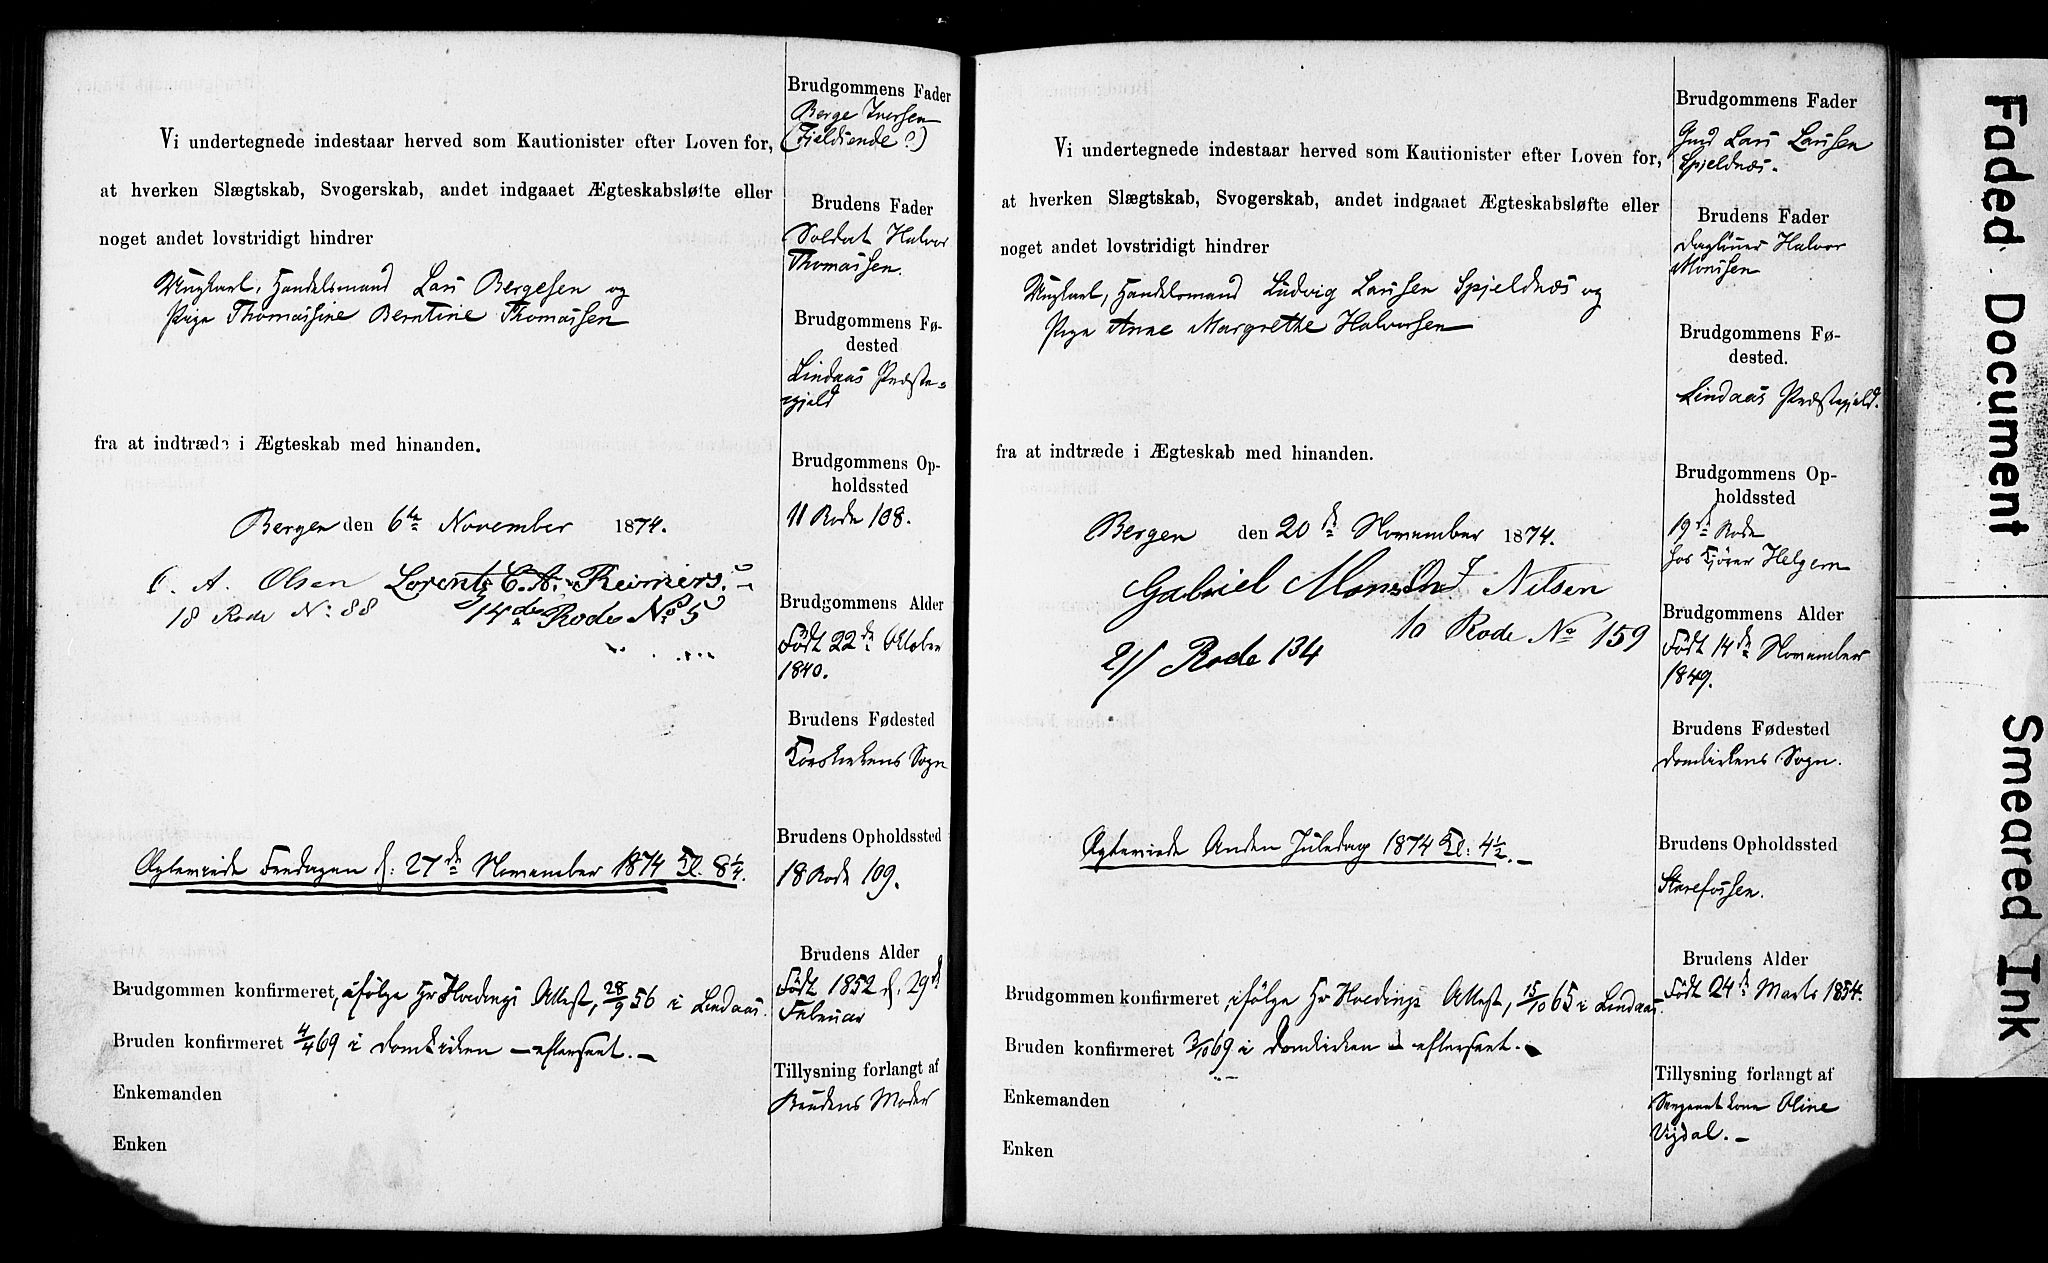 Vi undertegnede indestaar herved som Kautionister efter Loven for,
at hverken Slægtskab, Svogerskab, andet indgaaet Ægteskabsløfte eller
noget andet lovstridigt hindrer
Ungkarl, Handelsmand Lars Bergesen og
Pige Thomassine Berntine Thomassen
fra at indtræde i Ægteskab med hinanden.
Bergen den 6te November 1874.
C. A. Olsen Lorentz C. A. Reimers.
18 Rode No 88 14de Rode No 5
Ægteviede Fredagen d: 27de November 1874 Kl. 8¼.
Brudgommen konfirmeret, ifølge Hr Hvedings Attest, 28/9 56 i Lindaas.
Bruden konfirmeret 4/4 69 i Domkirken — efterseet. —
Enkemanden
Enken
Brudgommens Fader
Berge Iversen
(Fjeldsende?)
Brudens Fader
Soldat Halvor
Thomassen.
Brudgommens Fø-
desed
Lindaas Præste-
gjeld
Brudgommens Op-
holdssted
11 Rode 108.
Brudgommens Alder
Født 22de Oktober
1840.
Brudens Fødested
Korskirkens Sogn
Brudens Opholdssted
18 Rode 109.
Brudens Alder
Født 1852 d. 29de
Februar
Tillysning forlangt af
Brudens Moder
Vi undertegnede indestaar herved som Kautionister efter Loven for,
at hverken Slægtskab, Svogerskab, andet indgaaet Ægteskabsløfte eller
noget andet lovstridigt hindrer
Ungkarl, Handelsmand Ludvig Larssen Spjeldnæs og
Pige Anne Margrethe Halvorsen
fra at indtræde i Ægteskab med hinanden.
Bergen den 20de November 1874.
Gabriel Monsen Nilsen
10 Rode No 159
21 Rode 134
Ægteviede Anden Juledag 1874 Kl: 4½. —
Brudgommen konfirmeret, ifølge Hr Hvedings Attest, 15/10 65 i Lindaas.
Bruden konfirmeret 3/10 69 i Domkirken — efterseet. —
Enkemanden
Enken
Brudgommens Fader
Gmd Lars Larssen
Spjeldnæs.
Brudens Fader
Dagleier Halvor
Monssen
Brudgommens Fø-
dested.
Lindaas Præstegjeld.
Brudgommens Op-
holdssted
19de Rode
hos Kjører Helgesen
Brudgommens Alder
Født 14de November
1849.
Brudens Fødested
Domkirkens Sogn.
Brudens Opholdssted
Starefossen.
Brudens Alder
Født 24de Marts 1854.
Tillysning forlangt af
Sergeantkone Oline
Vigdal. —
Faded Document
Smeared Ink